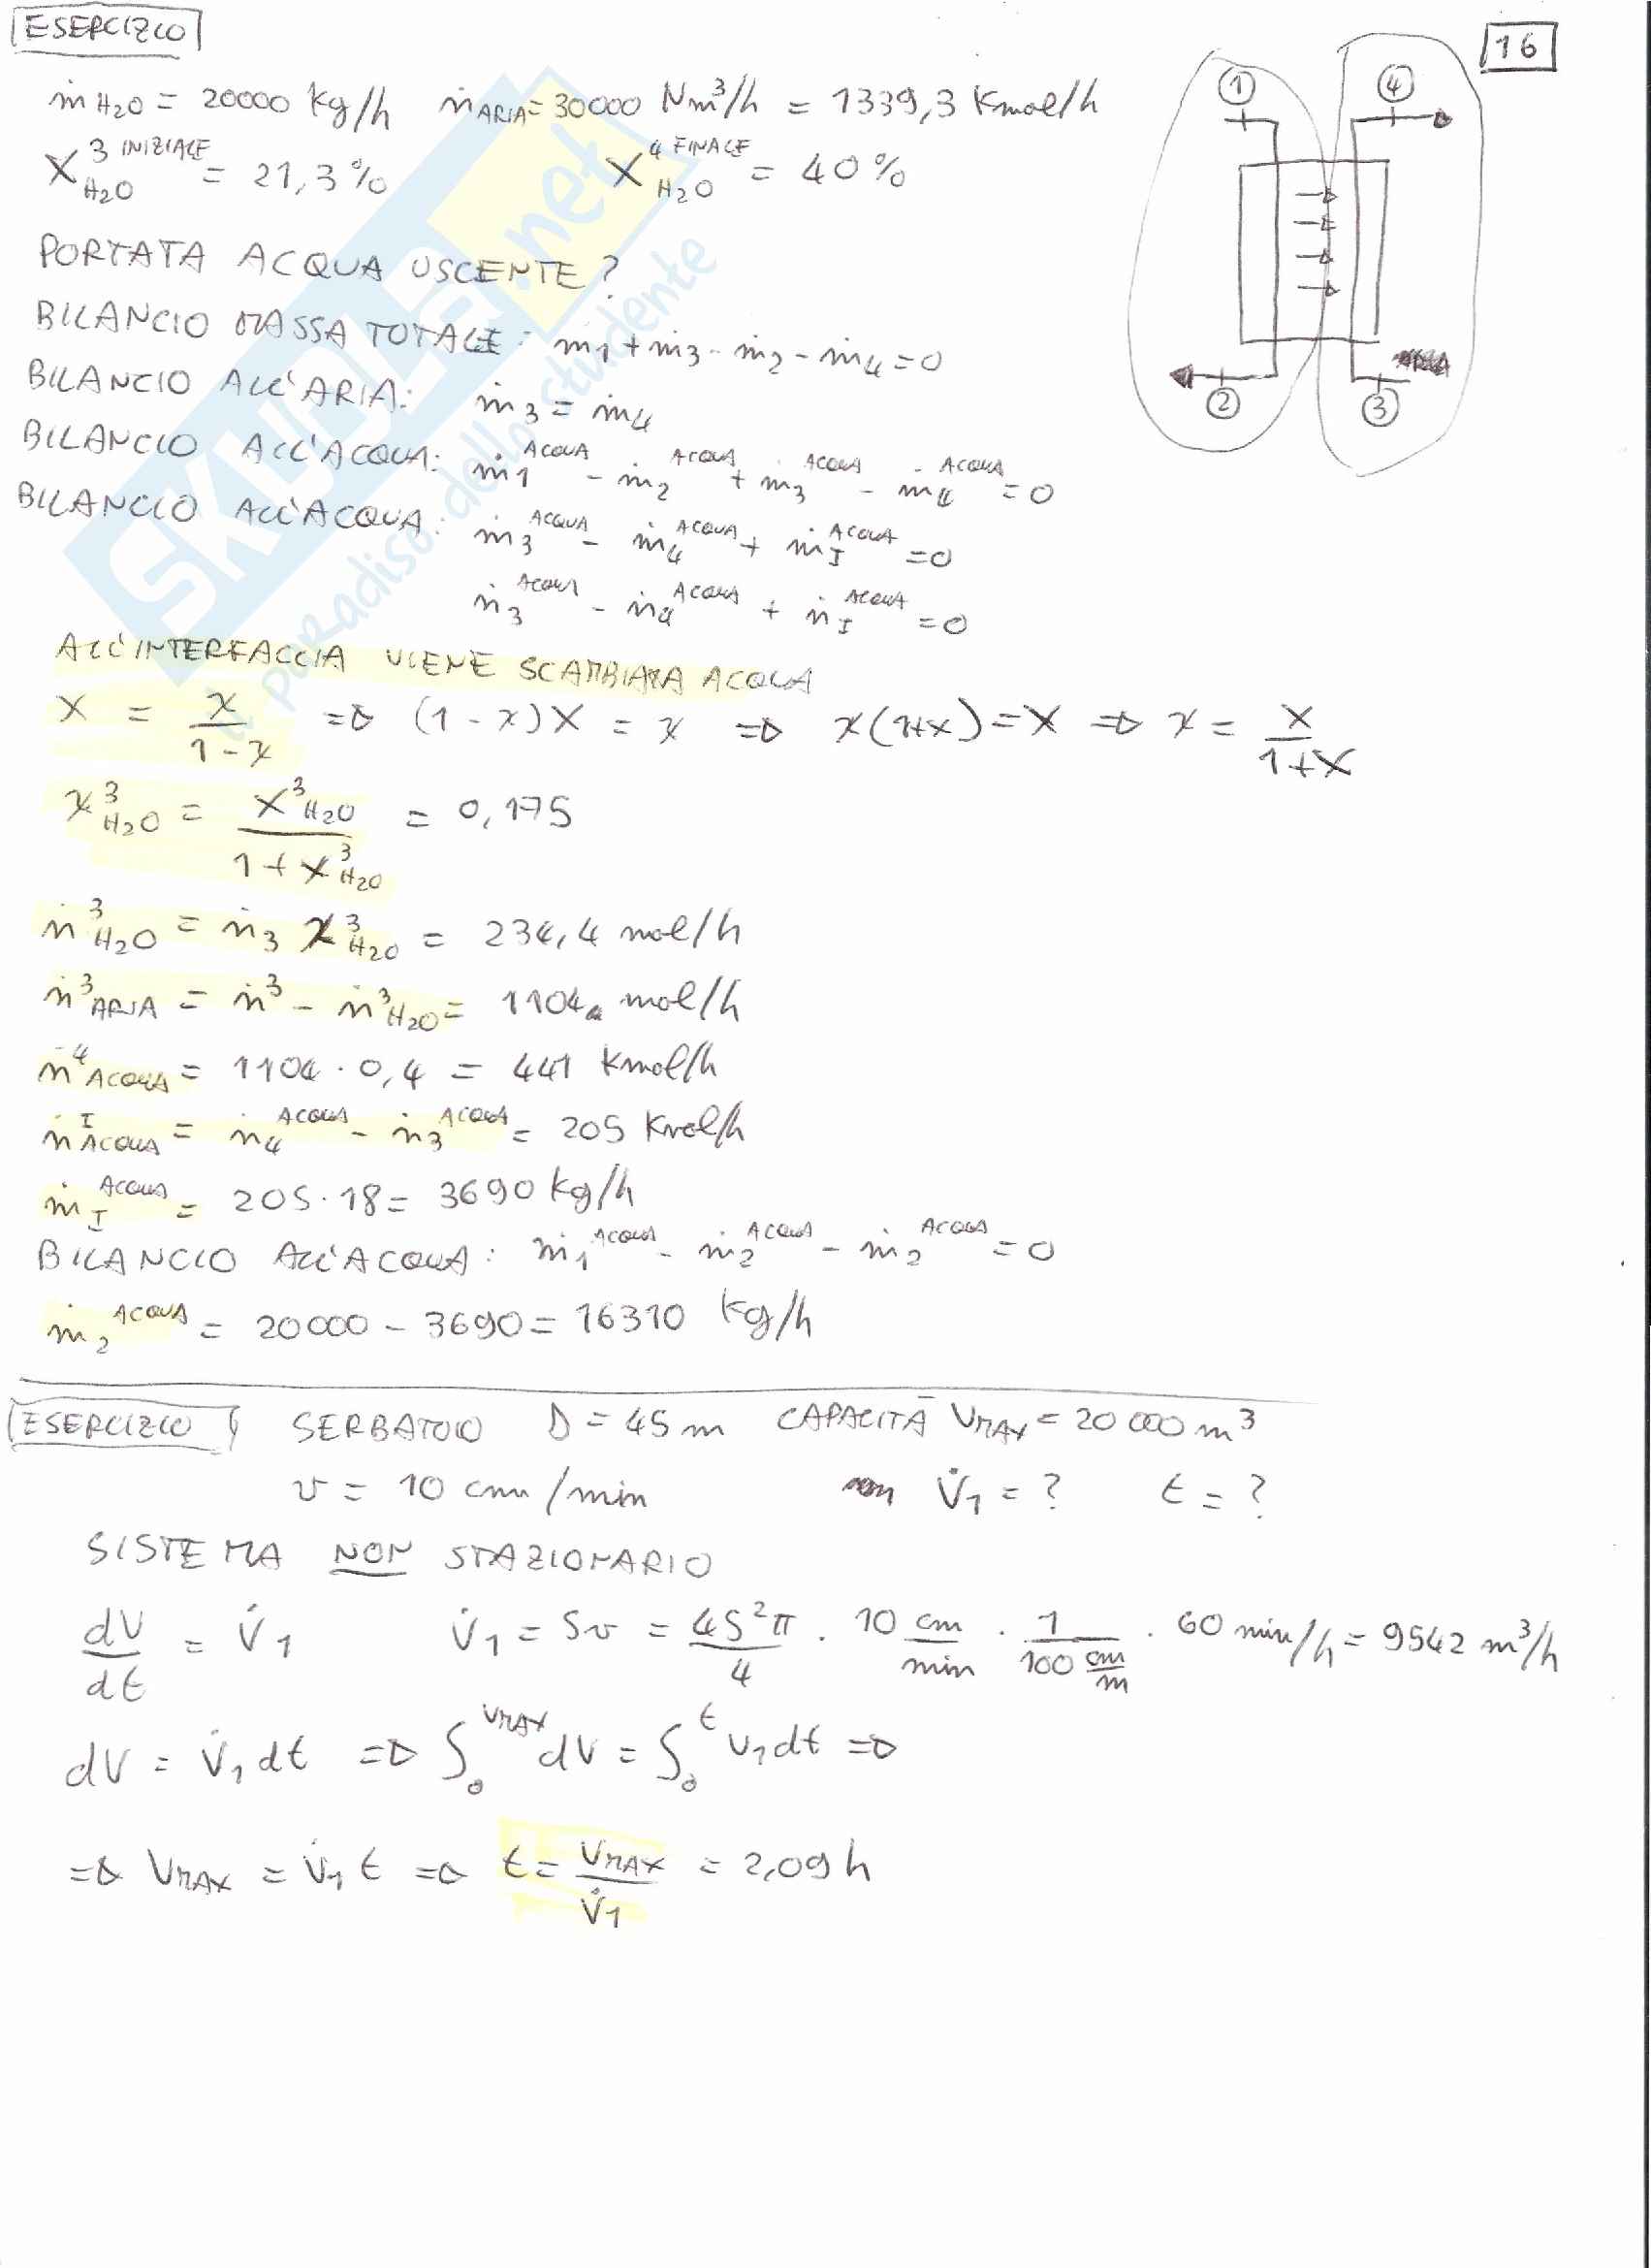 ESERCIZIO
16
ṁ H₂O = 20000 kg/h ṅ ARIA = 30000 Nm³/h = 1339,3 Kmol/h
X³ INIZIALE H₂O = 21,3% X⁴ FINALE H₂O = 40%
PORTATA ACQUA USCENTE?
BILANCIO MASSA TOTALE: ṁ₁ + ṁ₃ - ṁ₂ - ṁ₄ = 0
BILANCIO ALL'ARIA: ṁ₃ = ṁ₄
BILANCIO ALL'ACQUA: ṁ₁ ACQUA - ṁ₂ ACQUA + ṁ₃ ACQUA - ṁ₄ ACQUA = 0
BILANCIO ALL'ACQUA: ṁ₃ ACQUA - ṁ₄ ACQUA + ṁ_I ACQUA = 0
ṅ₃ ACQUA - ṅ₄ ACQUA + ṅ_I ACQUA = 0
ALL'INTERFACCIA VIENE SCAMBIATA ACQUA
X = x/(1-x) => (1-x)X = x => x(1+X) = X => x = X/(1+X)
x³H₂O = X³H₂O/(1+X³H₂O) = 0,175
ṅ³H₂O = ṅ₃ x³H₂O = 234,4 mol/h
ṅ³ARIA = ṅ³ - ṅ³H₂O = 1104 mol/h
ṅ⁴ACQUA = 1104 · 0,4 = 441 Kmol/h
ṅ^I ACQUA = ṅ₄ ACQUA - ṅ₃ ACQUA = 205 Kmol/h
ṁ_I ACQUA = 205 · 18 = 3690 kg/h
BILANCIO ALL'ACQUA: ṁ₁ ACQUA - ṁ₂ ACQUA - ṁ₂ ACQUA = 0
ṁ₂ ACQUA = 20000 - 3690 = 16310 kg/h
1 4
2 3
ESERCIZIO SERBATOIO D = 45 m CAPACITÀ V_MAX = 20000 m³
v = 10 cm/min V̇₁ = ? t = ?
SISTEMA NON STAZIONARIO
dV/dt = V̇₁ V̇₁ = Sv = 45²π/4 · 10 cm/min · 1/(100 cm/m) · 60 min/h = 9542 m³/h
dV = V̇₁ dt => ∫₀^VMAX dV = ∫₀^t V̇₁ dt =>
=> V_MAX = V̇₁ t => t = V_MAX/V̇₁ = 2,09 h
SKUOLA.net
il paradiso dello studente